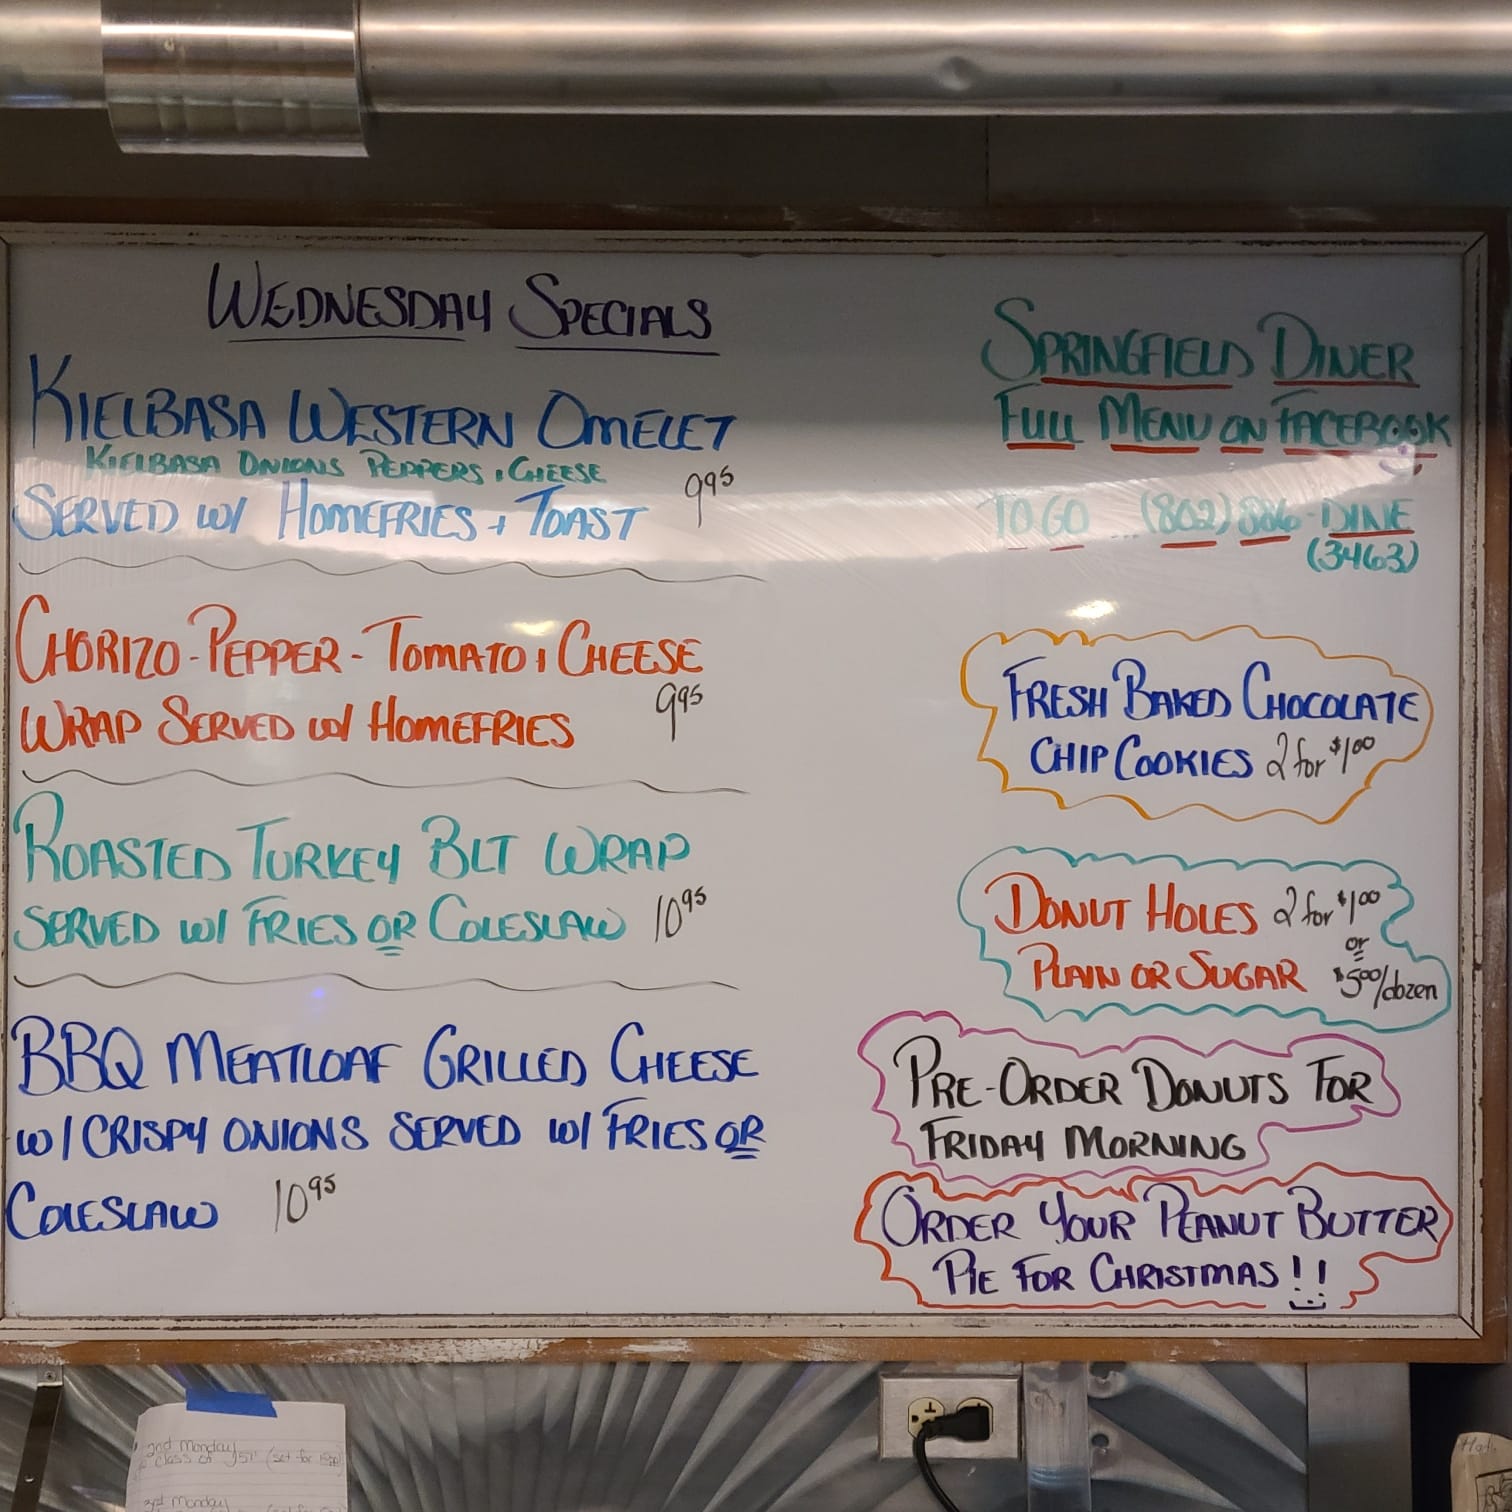 WEDNESDAY SPECIALS
KIELBASA WESTERN OMELET
KIELBASA ONIONS PEPPERS + CHEESE
SERVED W/ HOMEFRIES + TOAST 9.95
CHORIZO - PEPPER - TOMATO + CHEESE
WRAP SERVED W/ HOMEFRIES 9.95
ROASTED TURKEY BLT WRAP
SERVED W/ FRIES OR COLESLAW 10.95
BBQ MEATLOAF GRILLED CHEESE
W/ CRISPY ONIONS SERVED W/ FRIES OR
COLESLAW 10.95
SPRINGFIELD DINER
FULL MENU ON FACEBOOK
TO GO ... (802) 886-DINE
(3463)
FRESH BAKED CHOCOLATE
CHIP COOKIES 2 for $1.00
DONUT HOLES 2 for $1.00
or
PLAIN OR SUGAR $5.00/dozen
PRE-ORDER DONUTS FOR
FRIDAY MORNING
ORDER YOUR PEANUT BUTTER
PIE FOR CHRISTMAS !!
2nd Monday
class of '57 (set for
3rd Monday